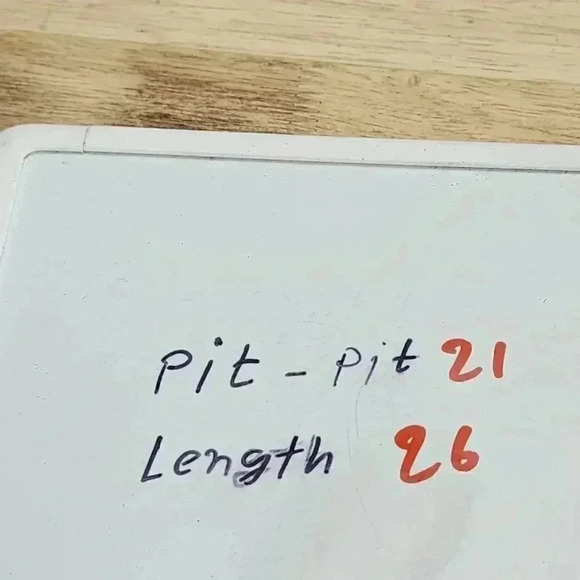 Pit - Pit 21
Length 26